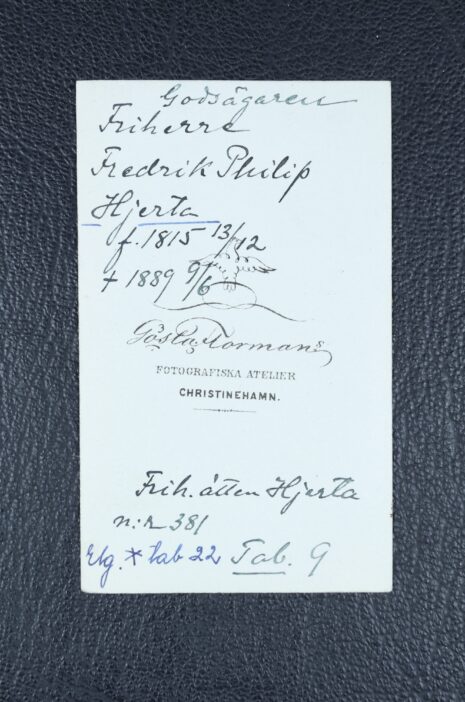 Godsägaren
Friherre
Fredrik Philip
Hjerta
f. 1815 13/12
† 1889 9/6
Gösta Florman's
FOTOGRAFISKA ATELIER
CHRISTINEHAMN.
Frih. ätten Hjerta
n:r 381
Elg. * tab 22 Tab. 9